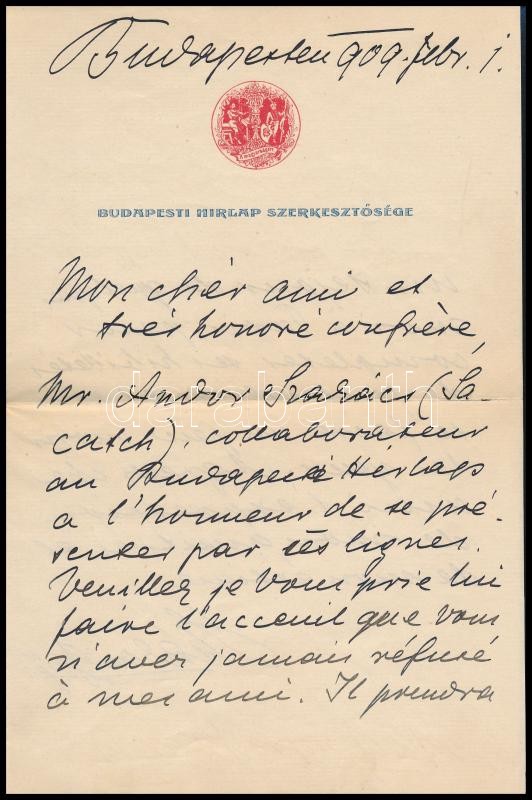 Budapesten 909. febr. 1.
BUDAPESTI HIRLAP SZERKESZTŐSÉGE
Mon chér ami et
trés honoré confrère,
Mr. Andor Szakács (Sa-
catch), collaborateur
au Budapesti Hirlap
a l'honneur de se pré-
senter par ces lignes.
Veuillez je vous prie lui
faire l'acceuil que vous
n'avez jamais réfusé
à mes ami. Il prendra
darabanth